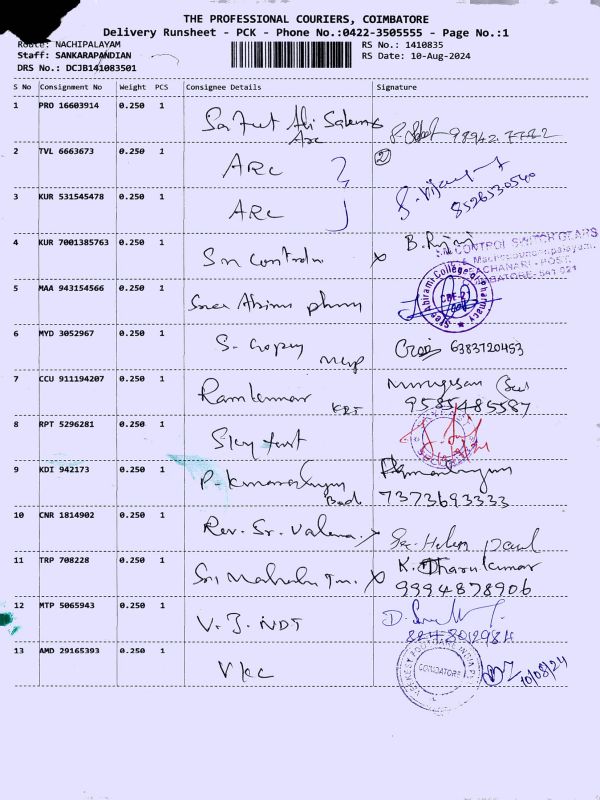 THE PROFESSIONAL COURIERS, COIMBATORE
Delivery Runsheet - PCK - Phone No.:0422-3505555 - Page No.:1
Route: NACHIPALAYAM RS No.: 1410835
Staff: SANKARAPANDIAN RS Date: 10-Aug-2024
DRS No.: DCJB141083501
S No Consignment No Weight PCS Consignee Details Signature
1 PRO 16603914 0.250 1
Arc
2 TVL 6663673 0.250 1 ARC 2
3 KUR 531545478 0.250 1 ARC 8526530540
4 KUR 7001385763 0.250 1 Sri Controls x B.
CONTROL SWITCH GEARS
5 MAA 943154566 0.250 1 Sree Abirami
Sree Abirami College of Pharmacy
CBE-21
6 MYD 3052967 0.250 1 S. Gopay 6383720453
7 CCU 911194207 0.250 1 Ramkumar Murugesan
9585485587
8 RPT 5296281 0.250 1
9 KDI 942173 0.250 1 P.
7373693333
10 CNR 1814902 0.250 1 Rev. Sr. Sr. Helen Paul
11 TRP 708228 0.250 1 Sri x K. Tharukumar
9994878906
12 MTP 5065943 0.250 1 V. J. NDT D.
8248012984
13 AMD 29165393 0.250 1 VKC
COIMBATORE
10/08/24